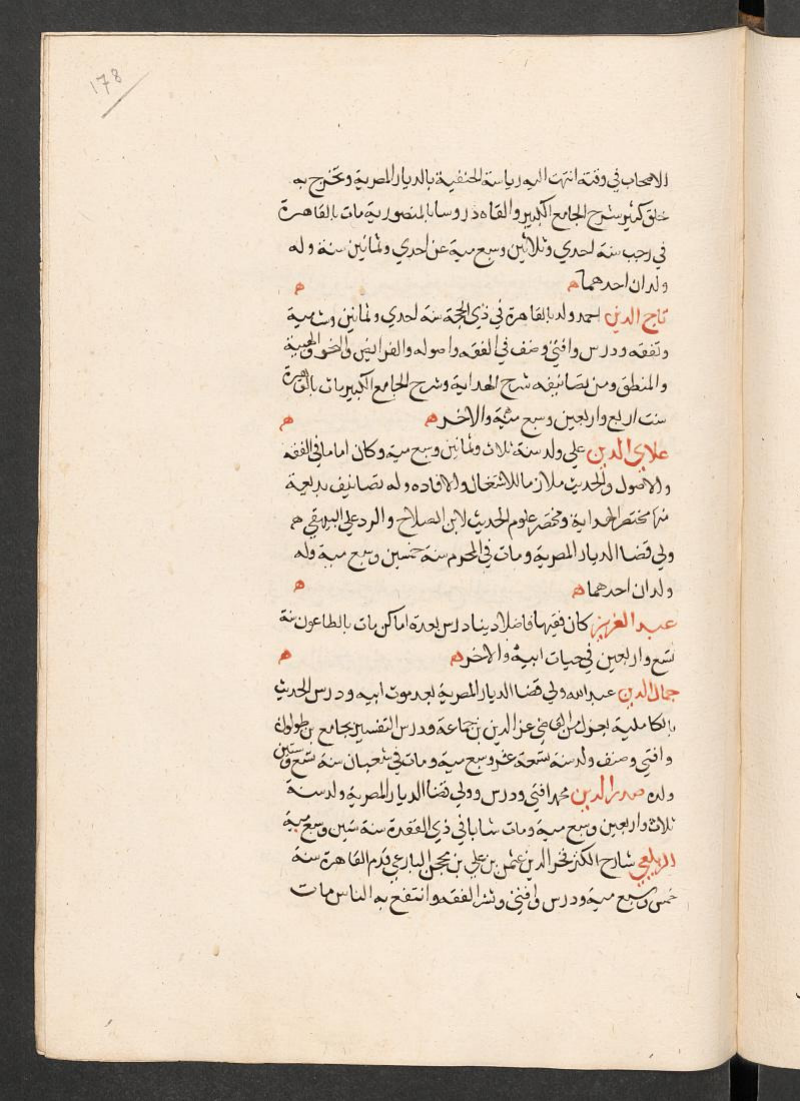 178
الاصحاب في وقته انتهت اليه رياسة الحنفية بالديار المصرية وتخرج به
خلق كثير شرح الجامع الكبير والقاه دروسا بالمنصورية مات بالقاهرة
في رجب سنة احدي وثلاثين وسبع مية عن احدي وثمانين سنة وله
ولدان احدهما ه ه
تاج الدين احمد ولد بالقاهرة في ذي الحجة سنة احدي وثمانين وستمية
وتفقه ودرس وافتي وصنف في الفقه واصوله والفرايض والنحو والهيية
والمنطق ومن تصانيفه شرح الهداية وشرح الجامع الكبير مات بالقاهرة
سنت اربع واربعين وسبع مئية والاخر ه ه
علاي الدين علي ولد سنة ثلاث وثمانين وسبع مية وكان اماما في الفقه
والاصول والحديث ملازما للاشتغال والافاده وله تصانيف بديعية
منها مختصر الهداية ومختصر علوم الحديث لابن الصلاح والرد علي البيهقي ه
ولي قضا الديار المصرية ومات في المحرم سنة خمسين وسبع مية وله
ولدان احدهما ه ه
عبد العزيز كان فقيها فاضلا دينا درس بعدة اماكن مات بالطاعون سنة
تسع واربعين في حيات ابية والاخر ه ه
جمال الدين عبد الله ولي قضا الديار المصرية بعد موت ابيه ودرس الحديث
بالكاملية بعد القاضي عز الدين بن جماعة ودرس التفسير بجامع بن طولون
وافتي وصنف ولد سنة تسعة عشر وسبع مية ومات في شعبان سنة تسع وستين
ولده صدر الدين محمد افتي ودرس وولي قضا الديار المصرية ولد سنة
ثلاث واربعين وسبع مية ومات شابا في ذي القعدة سنة ستين وسبع مية
الزيلعي شارح الكنز فخر الدين عثمن بن علي بن محجن البارعي قدم القاهرة سنة
خمس وسبع مية ودرس وافتي ونشر الفقه وانتفع به الناس مات